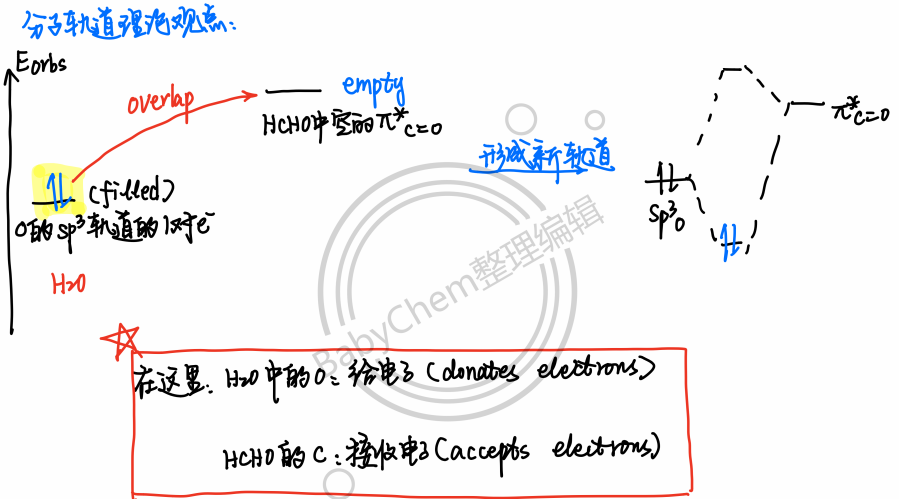 分子轨道理论观点:
Eorbs
overlap
empty
HCHO中空的π*C=O
(filled)
O的sp³轨道的1对e⁻
H₂O
形成新轨道
π*C=O
sp³O
BabyChem整理编辑
在这里: H₂O中的O: 给电子 (donates electrons)
HCHO的C: 接收电子 (accepts electrons)